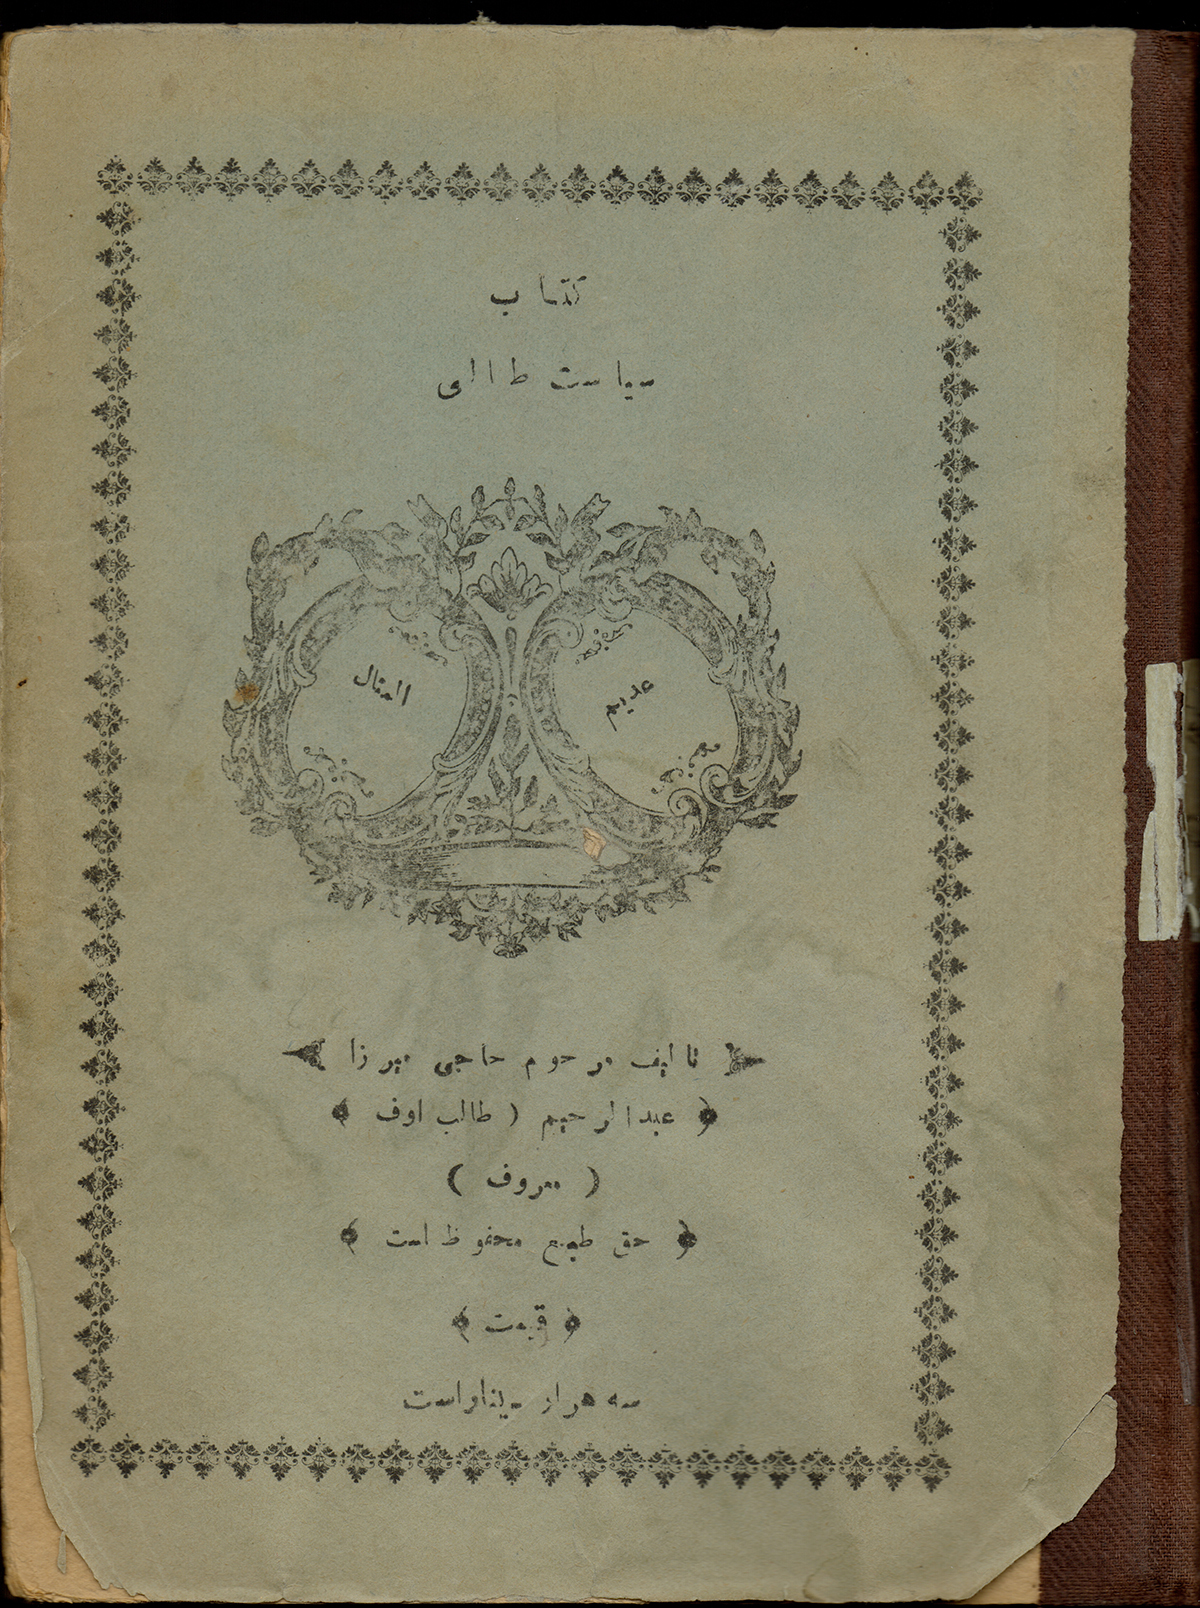 کتاب
سیاست طالبی
عدیم
المثال
تالیف مرحوم حاجی میرزا
عبدالرحیم ( طالب اوف
( معروف )
حق طبع محفوظ است
قیمت
سه هزار دینار است